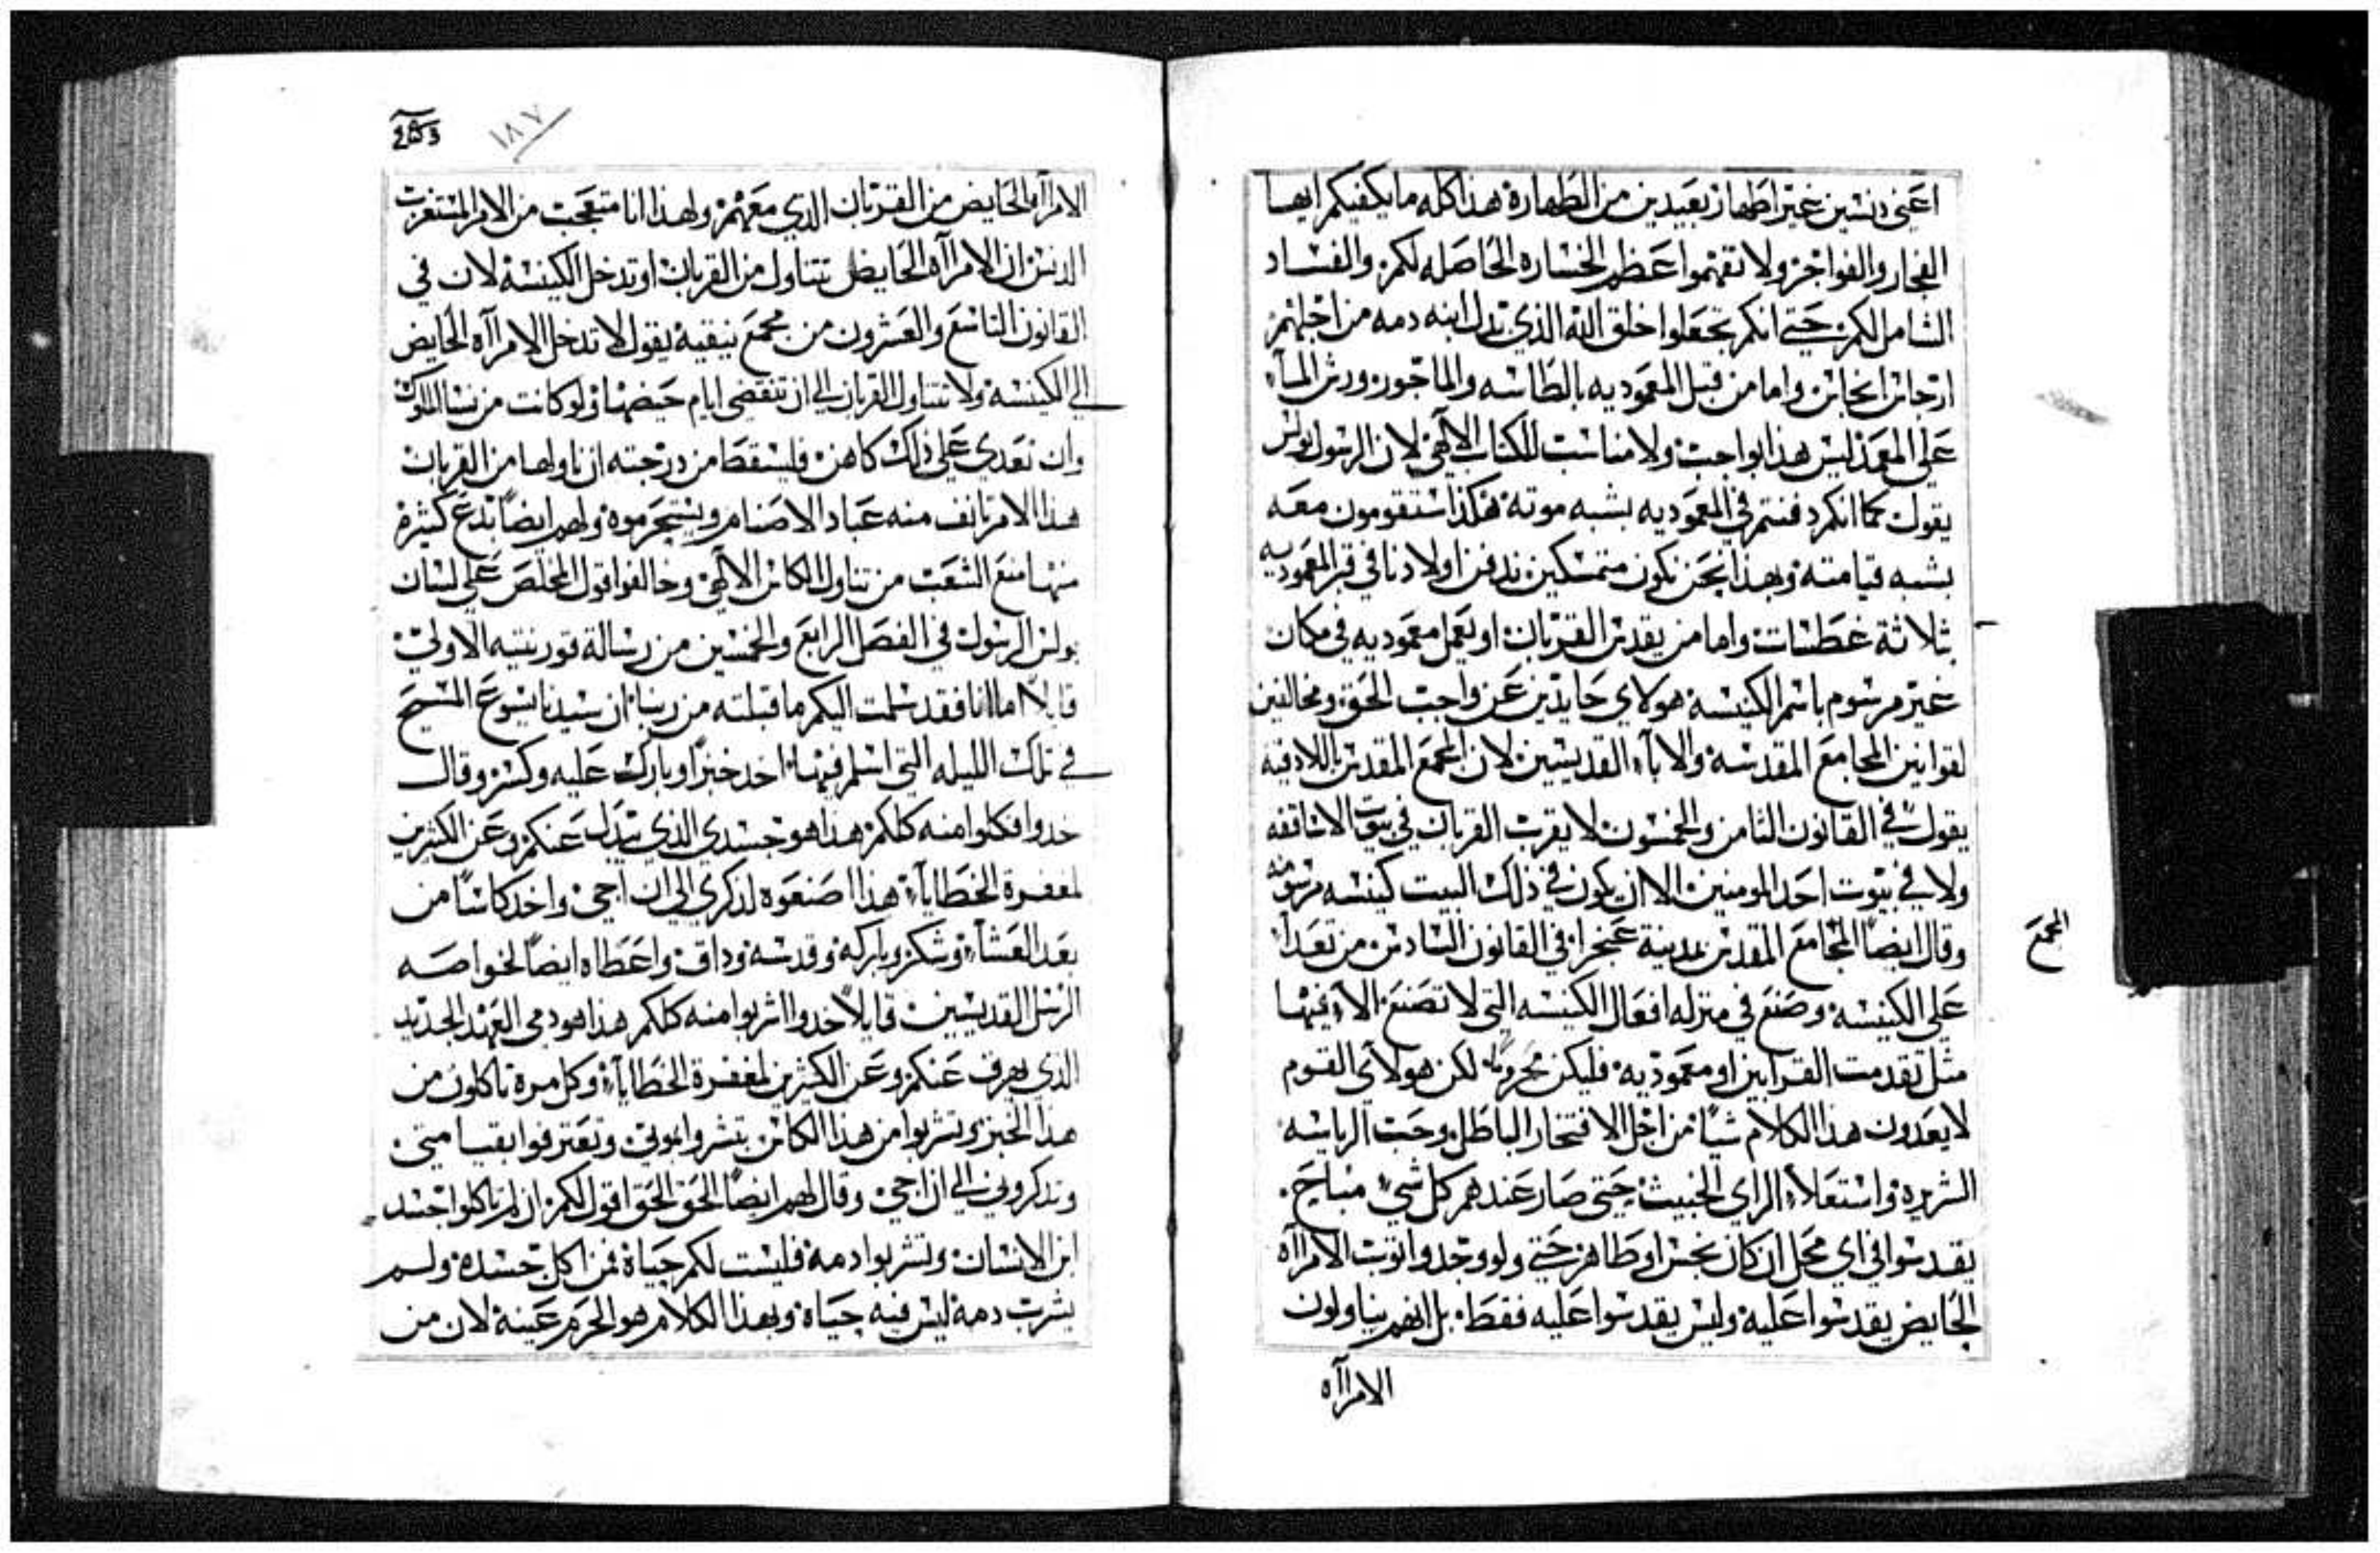 اعني دنسين غير اطهار بعيدين من الطهارة هذا كله ما يكفيكم ايها
الفجار والفواجر ولا تفهموا عظم الخساره الحاصله لكم والفساد
الشامل لكم حتي انكم تجعلوا خلق الله الذي بدل ابنه دمه من اجلهم
ارجاس انجاس واما من قبل المعموديه بالطاسه والماجور ورش المآء
علي المعمد ليس هذا بواجب ولا مناسب للكتاب الالهي لان الرسول بولس
يقول كما انكم دفنتم في المعموديه بشبه موته هكذا ستقومون معه
بشبه قيامته وبهذا نحن نكون متمسكين ندفن اولادنا في قبر المعموديه
بثلاثة غطسات واما من يقدس القربان او يعمل معموديه في مكان
غير مرسوم باسم الكنيسه هولاي حايدين عن واجب الحق ومخالفين
لقوانين المجامع المقدسه والابآء القديسين لان المجمع المقدس باللادقيه
يقول في القانون الثامن والخمسون لا يقرب القربان في بيوت الاساقفه
ولا في بيوت احد المومنين الا ان يكون في ذلك البيت كنيسه مرسومه
وقال ايضاً المجامع المقدس بمدينة غنجرا في القانون السادس من تعدا
المجمع
علي الكنيسه وصنع في منزله افعال الكنيسه التي لا تصنع الا فيها
مثل تقدمت القرابين او معموديه فليكن محروماً لكن هولآي القوم
لا يعدون هذا الكلام شياً من اجل الافتخار الباطل وحب الرياسه
الشريره واستعلاء الراي الخبيث حتي صار عندهم كل شيء مباح
يقدسوا في اي محل ان كان نجس او طاهر حتي ولو وجدوا ثوب الامرااه
الحايض يقدسوا عليه وليس يقدسوا عليه فقط بل انهم يناولون
الامراآه
253
١٨٧
الامراآه الحايض من القربان الذي معهم ولهذا انا متعجب من الامر المستغرب
الدنس ان الامراآه الحايض تتناول من القربان او تدخل الكنيسة لان في
القانون التاسع والعشرون من مجمع نيقية يقول لا تدخل الامراآه الحايض
الي الكنيسه ولا تتناول القربان الي ان تنقضي ايام حيضها ولو كانت من نسا الملوك
وان تعدي علي ذلك كاهن فليسقط من درجته ان ناولها من القربان
هذا الامر تانف منه عباد الاصنام ويستجرموه ولهم ايضاً بدع كثيرة
منها منع الشعب من تناول الكاس الالهي وخالفوا قول المخلص علي لسان
بولس الرسول في الفصل الرابع والخمسين من رسالة قورنتيه الاولي
قايلاً اما انا فقد سلمت اليكم ما قبلته من ربنا ان سيدنا يسوع المسيح
في تلك الليله التي اسلم فيها اخد خبزاً وبارك عليه وكسر وقال
خدوا فكلوا منه كلكم هذا هو جسدي الذي يبدل عنكم وعن الكثيرين
لمغفرة الخطايآء هذا اصنعوه لدكري الي ان اجي واخد كاساً من
بعد العشآء وشكر وباركه وقدسه وداق واعطاه ايضاً لخواصه
الرسل القديسين قايلاً خدوا اشربوا منه كلكم هذا هو دمي العهد الجديد
الذي يهرق عنكم وعن الكثيرين لمغفرة الخطايآء وكل مرة تاكلون من
هذا الخبز وتشربوا من هذا الكاس تبشروا بموتي وتعترفوا بقيامتي
وتدكروني الي ان اجي وقال لهم ايضاً الحق الحق اقول لكم ان لم تاكلوا جسد
ابن الانسان وتشربوا دمه فليست لكم حياة فمن اكل جسده ولم
يشرب دمه ليس فيه حياه وبهذا الكلام هو الحرم عينه لان من